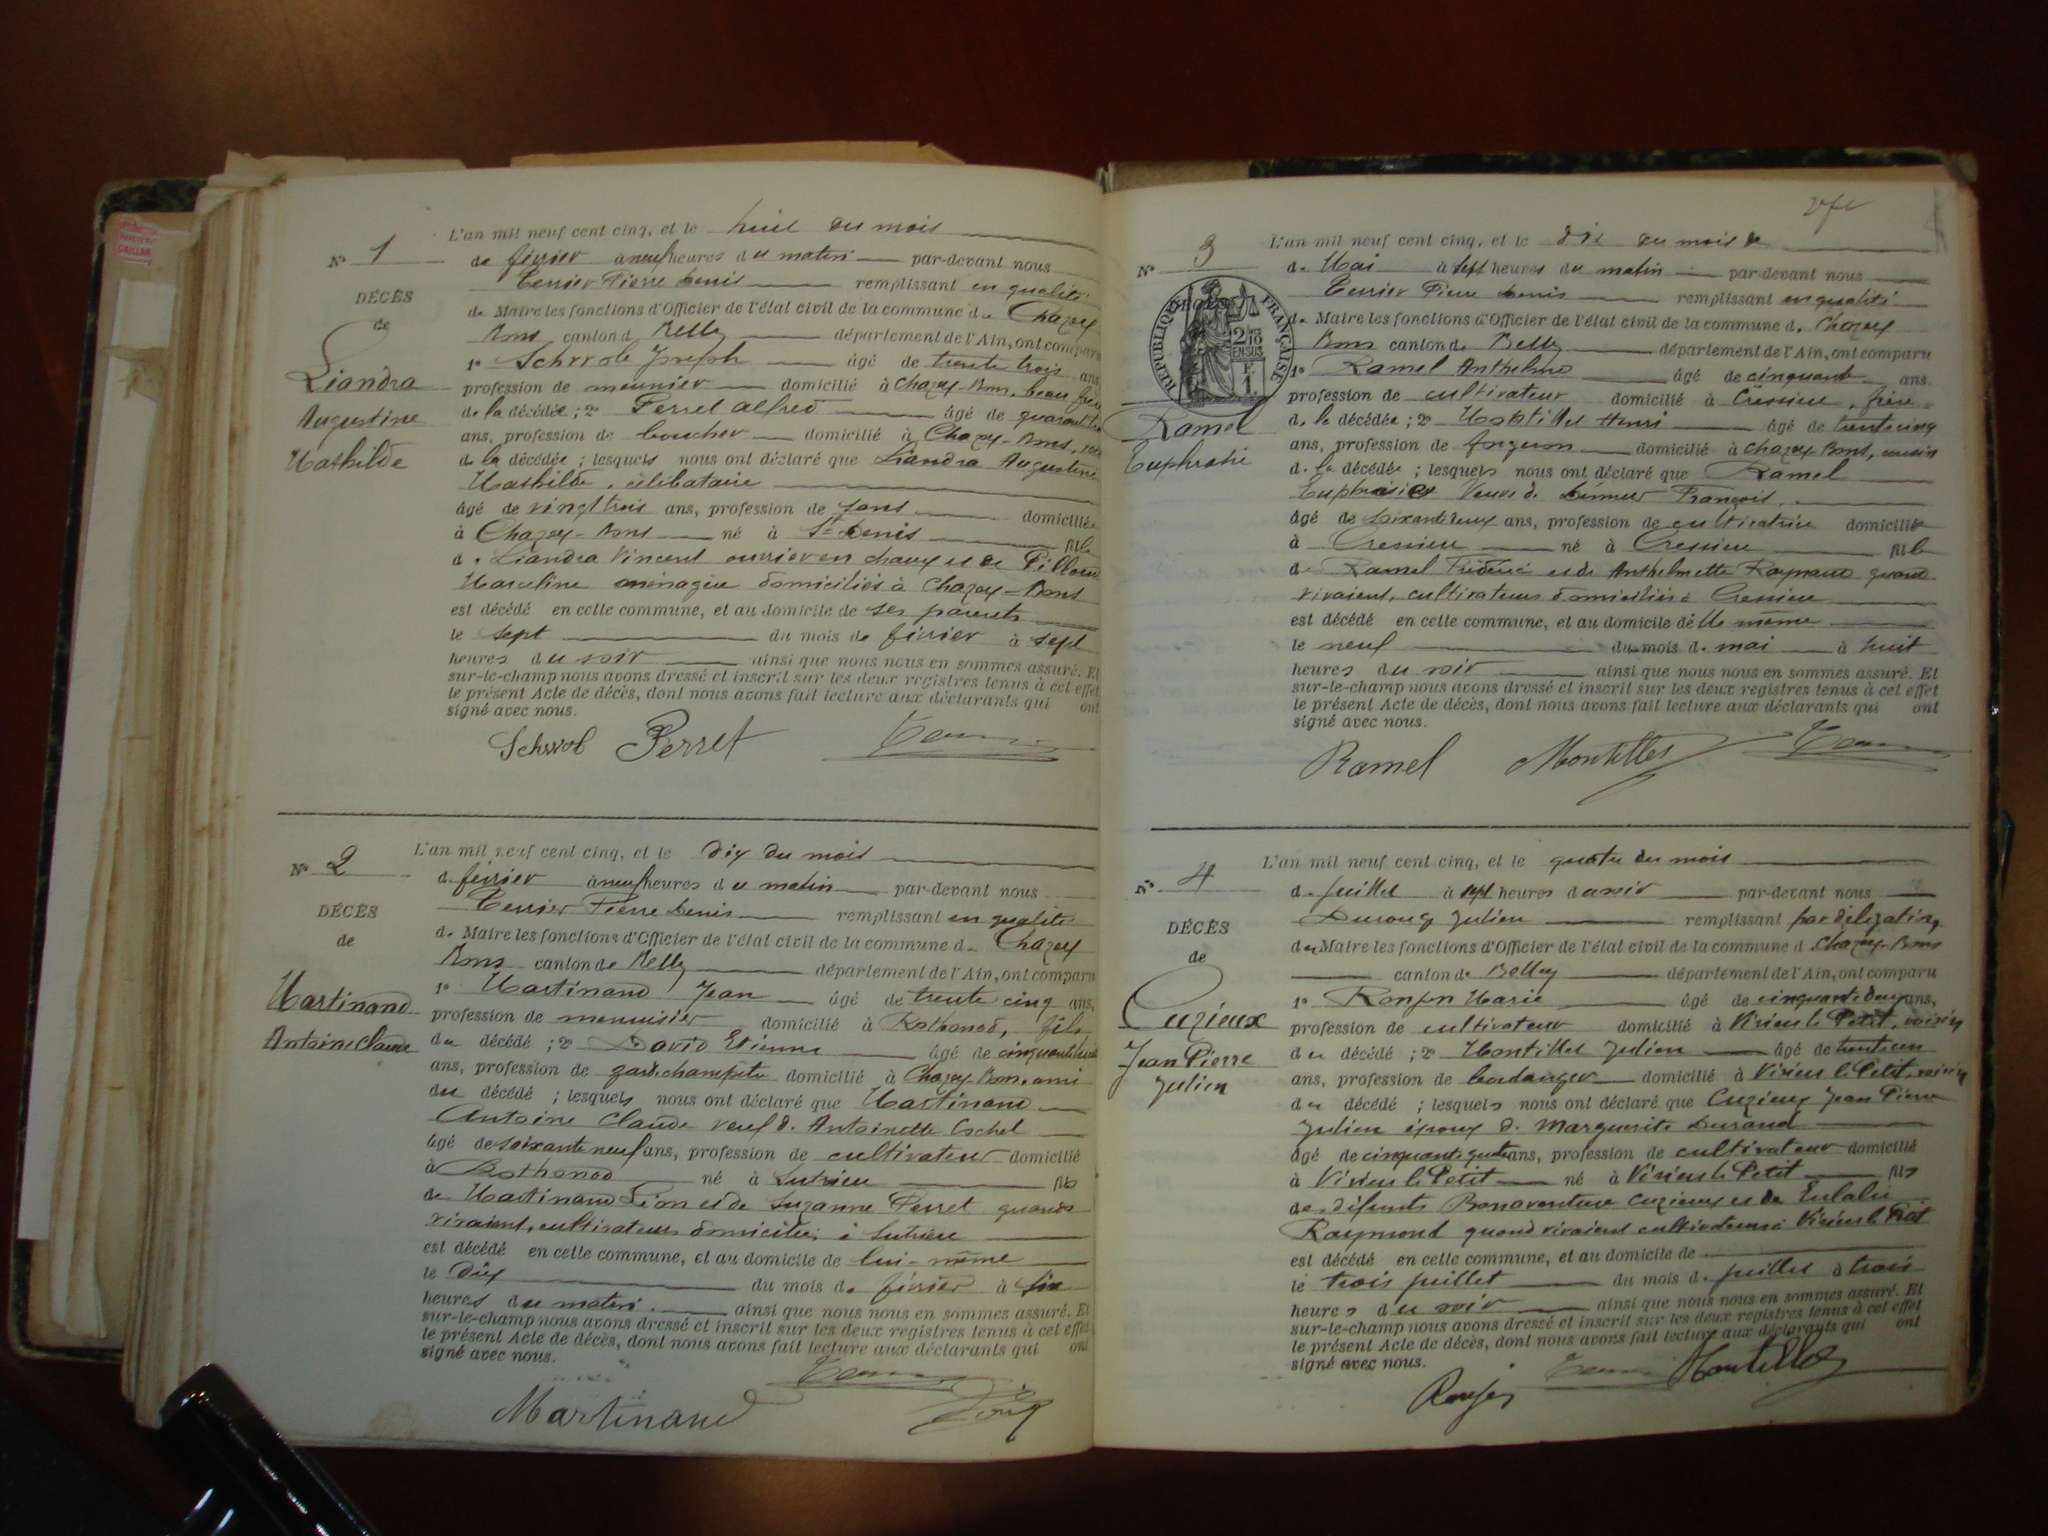 L'an mil neuf cent cinq, et le huit du mois
N° 1
de février à neuf heures du matin par-devant nous
Terrier Pierre Denis remplissant en qualité
de Maire les fonctions d'Officier de l'état civil de la commune de Chazey
Bons canton d Belley département de l'Ain, ont comparu
1° Schwob Joseph âgé de trente trois ans
profession de meunier domicilié à Chazey-Bons, beau frère
de la décédée ; 2° Perret Alfred âgé de quarante
ans, profession de boucher domicilié à Chazey-Bons,
de la décédée ; lesquels nous ont déclaré que Liandra Augustine
Mathilde, célibataire
âgé de vingt trois ans, profession de sans domiciliée
à Chazey-Bons né à St Denis fille
de Liandra Vincent ouvrier en chaux et de Pilloud
Marceline ménagère domiciliés à Chazey-Bons
est décédé en cette commune, et au domicile de ses parents
le sept du mois de février à sept
heures du soir ainsi que nous nous en sommes assuré. Et
sur-le-champ nous avons dressé et inscrit sur les deux registres tenus à cet effet
le présent Acte de décès, dont nous avons fait lecture aux déclarants qui ont
signé avec nous.
DÉCÈS
de
Liandra
Augustine
Mathilde
Schwob Perret
L'an mil neuf cent cinq, et le dix du mois
N° 2
de février à neuf heures du matin par-devant nous
Terrier Pierre Denis remplissant en qualité
de Maire les fonctions d'Officier de l'état civil de la commune de Chazey
Bons canton de Belley département de l'Ain, ont comparu
1° Martinand Jean âgé de trente cinq ans,
profession de menuisier domicilié à Rothonod, fils
du décédé ; 2° David Etienne âgé de cinquante
ans, profession de garde champêtre domicilié à Chazey Bons, ami
du décédé ; lesquels nous ont déclaré que Martinand
Antoine Claude veuf d. Antoinette Cochet
âgé de soixante neuf ans, profession de cultivateur domicilié
à Rothonod né à Sutrieu fils
de Martinand Léon et de Suzanne Perret quand
vivaient, cultivateurs domiciliés à Sutrieu
est décédé en cette commune, et au domicile de lui-même
le Dix du mois de février à six
heures du matin. ainsi que nous nous en sommes assuré. Et
sur-le-champ nous avons dressé et inscrit sur les deux registres tenus à cet effet
le présent Acte de décès, dont nous avons fait lecture aux déclarants qui ont
signé avec nous.
DÉCÈS
de
Martinand
Antoine Claude
Martinand
L'an mil neuf cent cinq, et le dix du mois de
N° 3
de Mai à sept heures du matin par-devant nous
Terrier Pierre Denis remplissant en qualité
de Maire les fonctions d'Officier de l'état civil de la commune d. Chazey
Bons canton de Belley département de l'Ain, ont comparu
1° Ramel Anthelme âgé de cinquante ans.
profession de cultivateur domicilié à Cressieu, frère
de la décédée ; 2° Montillet Henri âgé de trente cinq
ans, profession de forgeron domicilié à Chazey Bons, cousin
de la décédée ; lesquels nous ont déclaré que Ramel
Euphrasie Veuve de François.
âgé de soixante deux ans, profession de cultivatrice domiciliée
à Cressieu né à Cressieu fille
de Ramel Frédéric et de Anthelmette Raymand quand
vivaient, cultivateurs domiciliés à Cressieu
est décédé en cette commune, et au domicile d'elle même
le neuf du mois d. mai à huit
heures du soir ainsi que nous nous en sommes assuré. Et
sur-le-champ nous avons dressé et inscrit sur les deux registres tenus à cet effet
le présent Acte de décès, dont nous avons fait lecture aux déclarants qui ont
signé avec nous.
RÉPUBLIQUE FRANÇAISE
2/10 EN SUS
Ramel
Euphrasie
Ramel Montillet
L'an mil neuf cent cinq, et le quatre du mois
N° 4
d. juillet à sept heures du soir par-devant nous
Julien remplissant par délégation
du Maire les fonctions d'Officier de l'état civil de la commune d. Chazey-Bons
canton de Belley département de l'Ain, ont comparu
1° Ronjon Marie âgé de cinquante deux ans,
profession de cultivateur domicilié à Virieu le Petit, voisin
du décédé ; 2° Montillet Julien âgé de trente un
ans, profession de boulanger domicilié à Virieu le Petit, voisin
du décédé ; lesquels nous ont déclaré que Cuzieux Jean Pierre
Julien époux d. Marguerite Durand
âgé de cinquante quatre ans, profession de cultivateur domicilié
à Virieu le Petit né à Virieu le Petit fils
de défunts Bonaventure Cuzieux et de Eulalie
Raymond quand vivaient cultivateurs à Virieu le Petit
est décédé en cette commune, et au domicile de
le trois juillet du mois d. juillet à trois
heures du soir ainsi que nous nous en sommes assuré. Et
sur-le-champ nous avons dressé et inscrit sur les deux registres tenus à cet effet
le présent Acte de décès, dont nous avons fait lecture aux déclarants qui ont
signé avec nous.
DÉCÈS
de
Cuzieux
Jean Pierre
Julien
Montillet